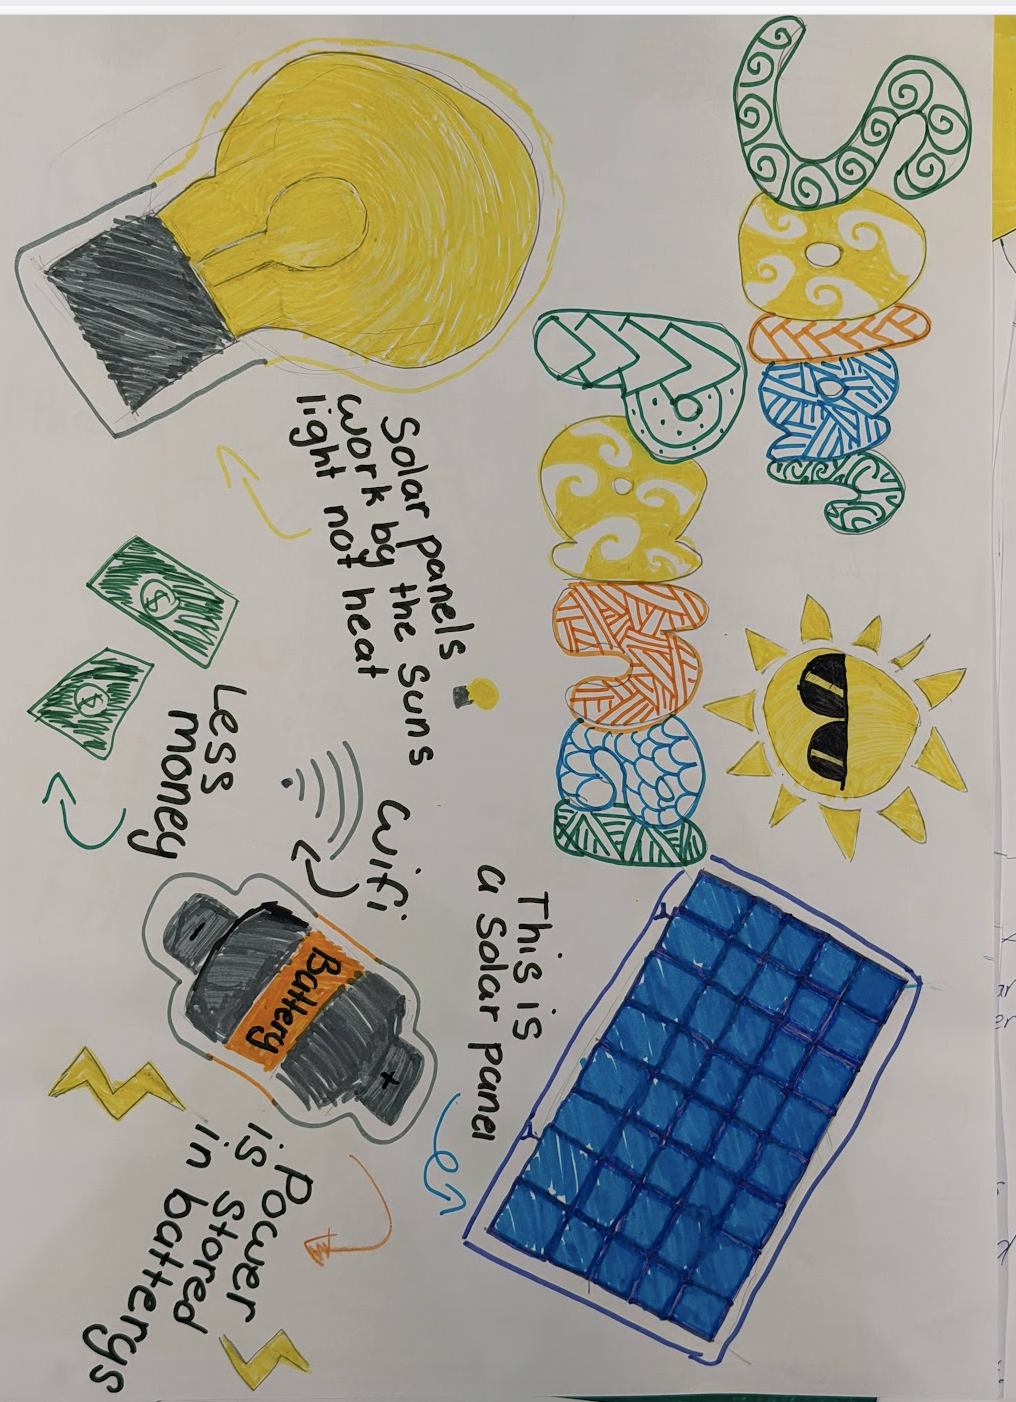 Solar
Panel
Solar panels
work by the suns
light not heat
This is
a solar panel
wifi
Less
money
$
$
-
Battery
+
Power
is stored
in batterys